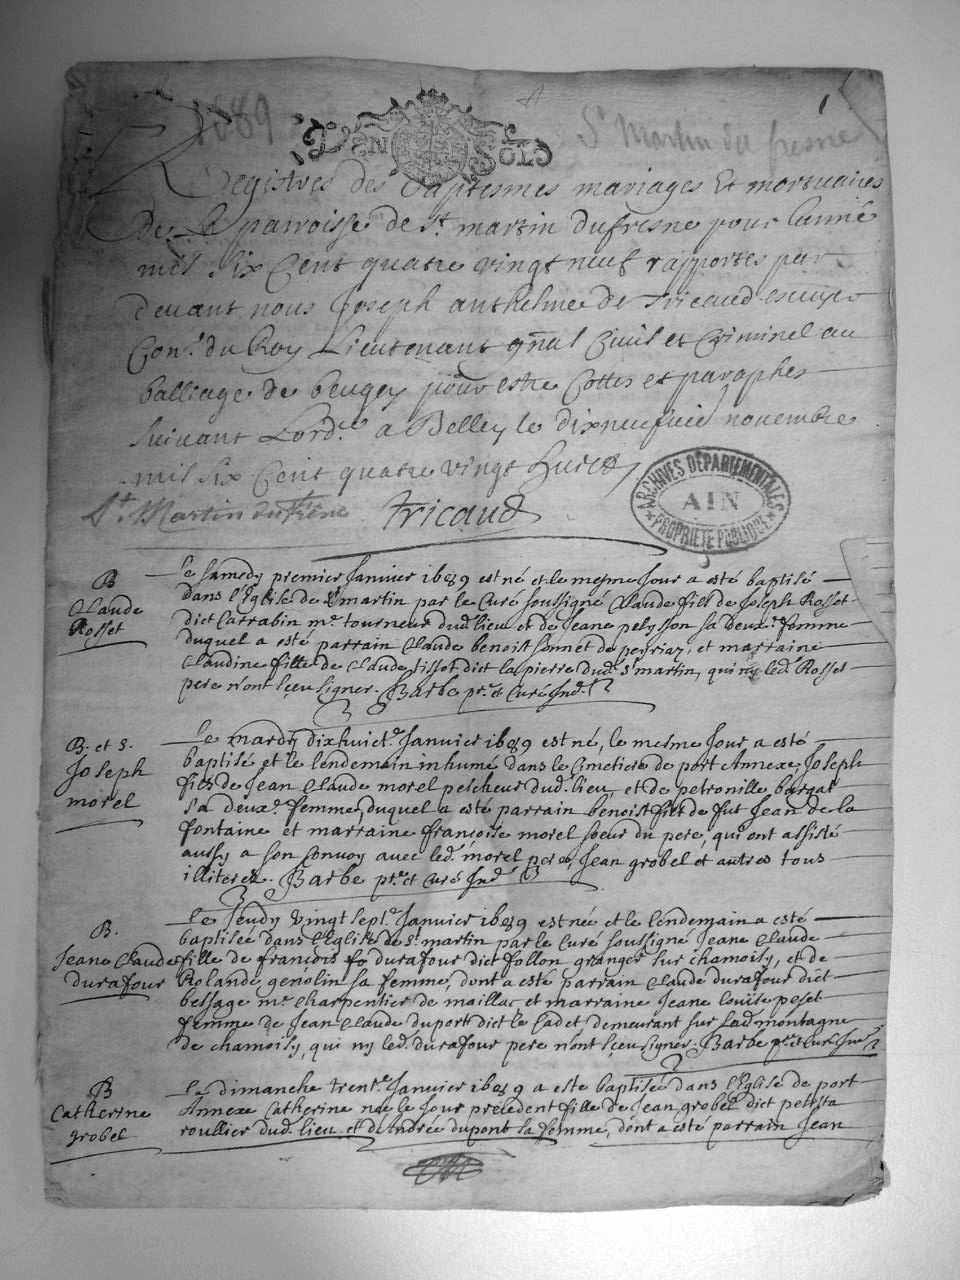 1689
St Martin du fresne
1
DEN SOLS
Registres des baptesmes mariages Et mortuaires
de La parroisse de St martin dufresne pour Lanné
mil Six Cent quatre vingt neuf rapportes par
devant nous Joseph anthelme de Tricaud escuyer
Con.r du Roy Lieutenant gnal Civil et Criminel au
balliage de beugey pour estre Cottes et paraphes
suivant Lord.e a Belley le dixneufvie novembre
mil six Cent quatre vingt huict
St. Martin du Frêne
Tricaud
ARCHIVES DÉPARTEMENTALES
AIN
PROPRIÉTÉ PUBLIQUE
B
Claude
Rosset
Le samedy premier Janvier 1689 est né et le mesme Jour a esté baptisé
dans l'Eglise de St martin par le Curé soussigné Claude fils de Joseph Rosset
dict Carrabin me. tourneur dud. lieu et de Jeane pelysson sa deux.e femme
duquel a esté parrain Claude benoist sonnet de peyriaz, et marraine
Claudine fille de Claude tissot dict la pierre dud. St martin, qui ny led. Rosset
pere n'ont sçeu signer. Barbe ptre. et Curé Ind.
B. et S.
Joseph
morel
Le mardy dixhuict.e Janvier 1689 est né, le mesme Jour a esté
baptisé et le lendemain inhumé dans le Cimetiere de port Annexe, Joseph
fils de Jean Claude morel pescheur dud. lieu, et de petronille bargat
sa deux.e femme, duquel a esté parrain benoist fils de fut Jean de la
fontaine et marraine françoise morel soeur du pere, qui ont assisté
aussy a son Convoy avec led. morel pere, Jean grobel et autres tous
illiterez. Barbe ptre. et Curé Ind.
B.
Jeane Claude
durafour
Le Jeudy vingt sept.e Janvier 1689 est née et le lendemain a esté
baptisée dans l'Eglise de St martin par le Curé soussigné Jeane Claude
fille de francois durafour dict follon granger sur chamoisy, et de
Rolande genolin sa femme, dont a esté parrain Claude durafour dict
bessage me. charpentier de maillac et marraine Jeane louise poset
femme de Jean Claude duport dict le Cadet demeurant sur Lad. montagne
de chamoisy, qui ny led. durafour pere n'ont sçeu signer. Barbe ptre. et Curé Ind.
B
Catherine
grobel
Le dimanche trent.e Janvier 1689 a esté baptisée dans l'Eglise de port
Annexe Catherine née le Jour precedent fille de Jean grobel dict petita
roullier dud. lieu et d'Andrée dupont sa femme, dont a esté parrain Jean